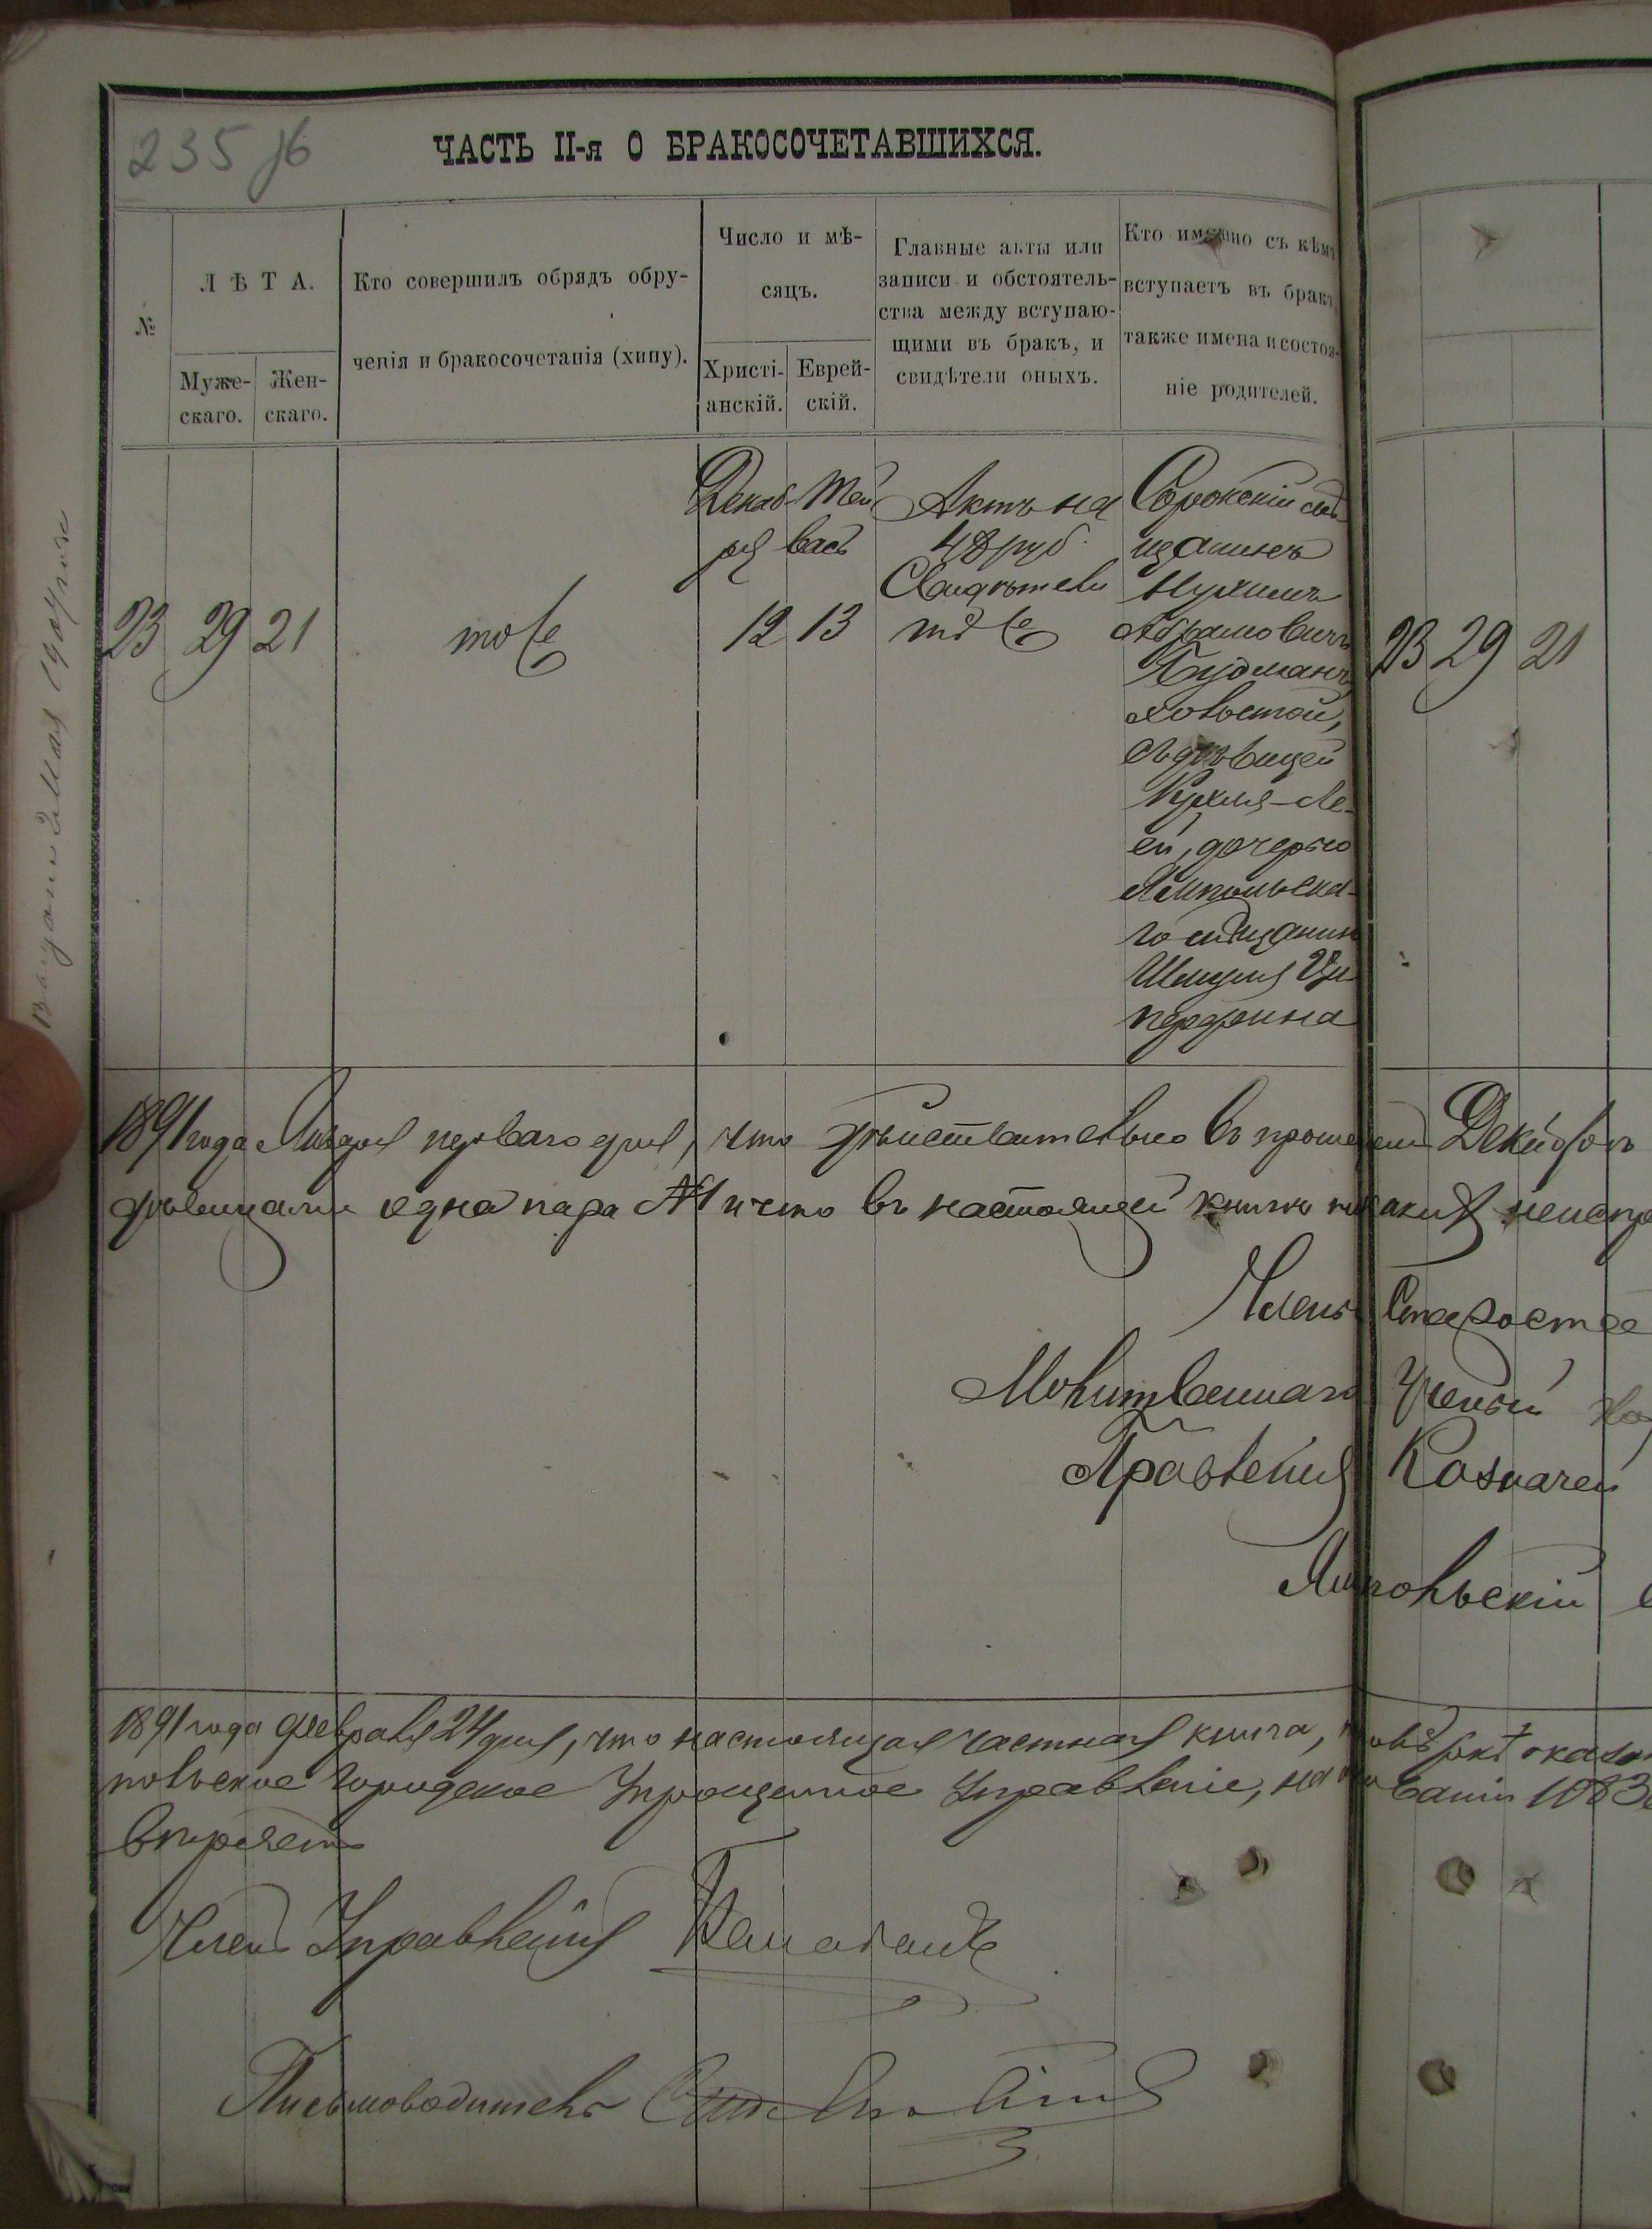 235 об
ЧАСТЬ II-я О БРАКОСОЧЕТАВШИХСЯ.
№
ЛѢТА.
Муже-
скаго.
Жен-
скаго.
Кто совершилъ обрядъ обру-
ченія и бракосочетанія (хипу).
Число и мѣ-
сяцъ.
Христі-
анскій.
Еврей-
скій.
Главные акты или
записи и обстоятель-
ства между вступаю-
щими въ бракъ, и
свидѣтели оныхъ.
Кто именно съ кѣмъ
вступаетъ въ бракъ
также имена и состоя-
ніе родителей.
Декаб-
ря
12
Тей
васъ
13
23 29 21
тоже
Актъ на
48 руб
Свидѣтели
тоже
Сорокскій мѣ-
щанинъ
Нухимъ
Абрамовичъ
Гудманъ
холостой,
съ дѣвицей
Рухля-Ле-
ей, дочерью
Ямпольска-
го мѣщанина
Шмуля Ци-
перфина
23 29 21
1891 года Января перваго дня, что дѣйствительно въ прошедшемъ Декабрѣ
дѣвицами одна пара №1 и что въ настоящей книгѣ никакихъ
Члены Староста
Молитвеннаго Ученый
Правленія Казначей
Ямпольскій
1891 года февраля 24 дня, что настоящая частная книга, повѣркѣ
польское Городское Упрощенное Управленіе, на 1083
Членъ Управленія
Письмоводитель